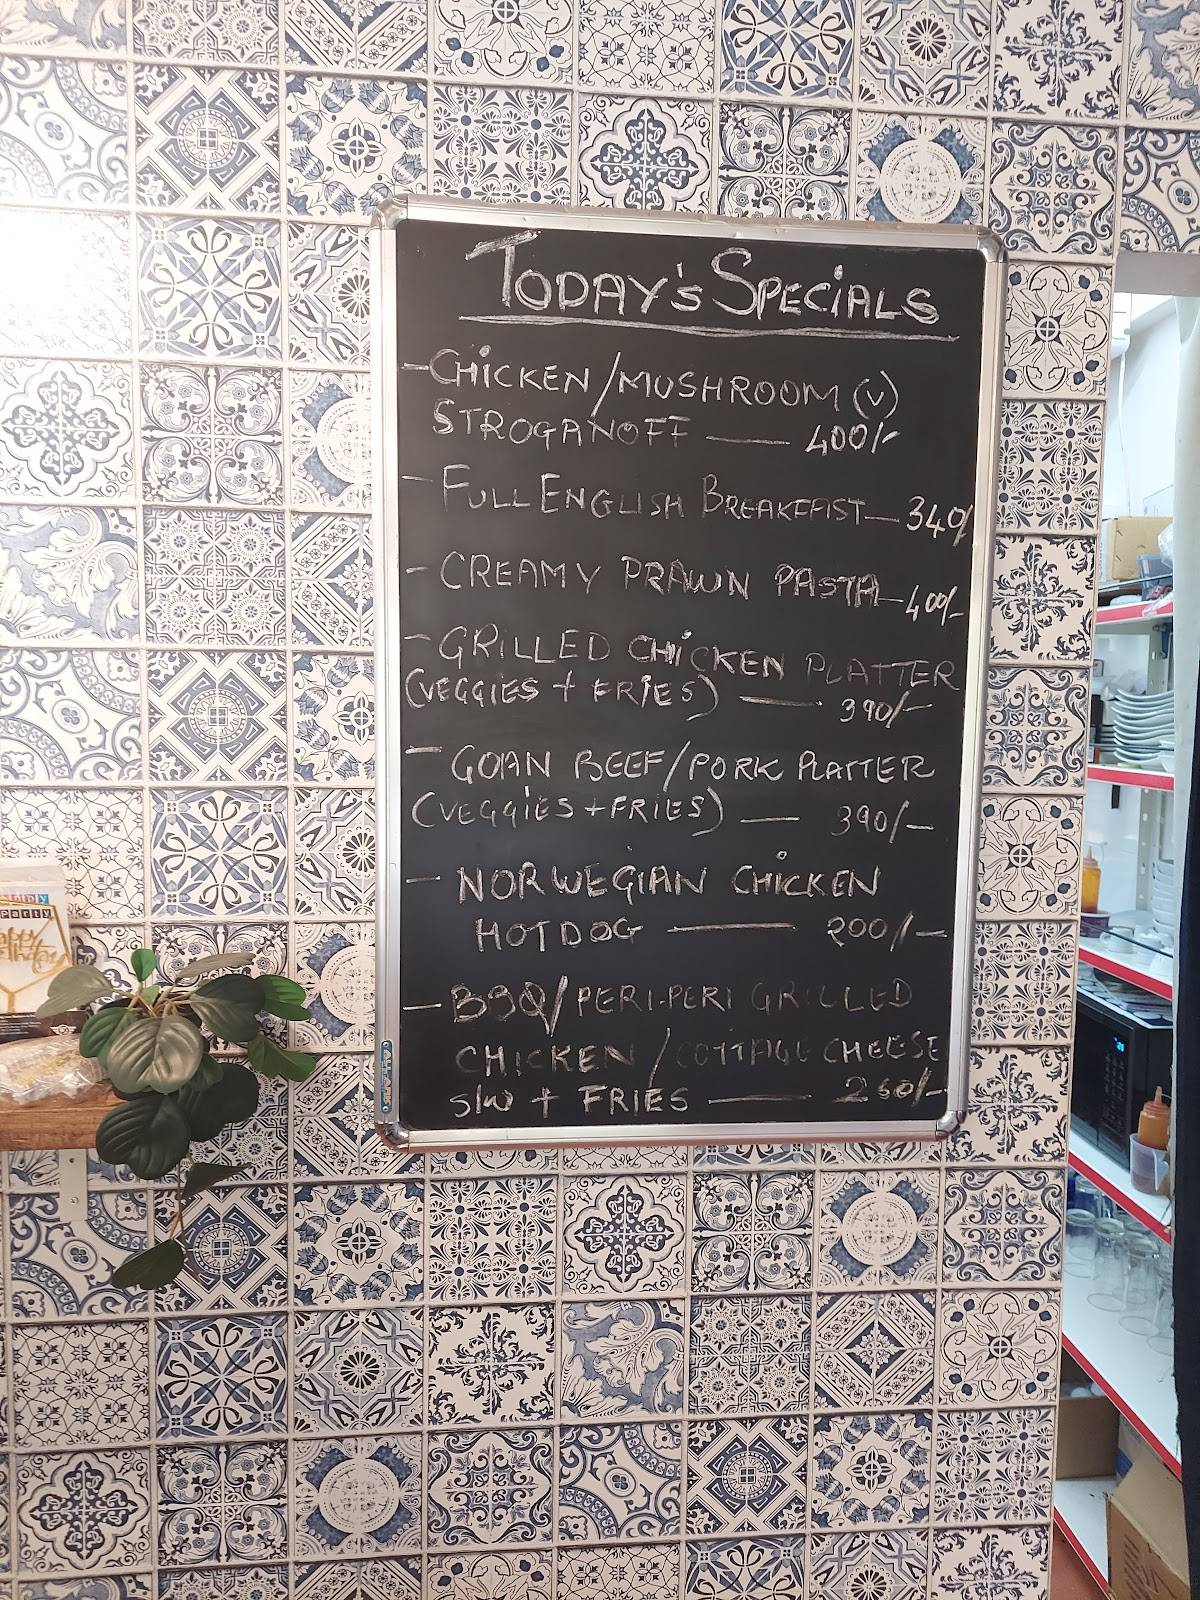 TODAY'S SPECIALS
- CHICKEN/MUSHROOM (V)
STROGANOFF — 400/-
- FULL ENGLISH BREAKFAST — 340/
- CREAMY PRAWN PASTA — 400/-
- GRILLED CHICKEN PLATTER
(VEGGIES + FRIES) — 390/-
- GOAN BEEF/PORK PLATTER
(VEGGIES + FRIES) — 390/-
- NORWEGIAN CHICKEN
HOTDOG — 200/-
- BBQ/PERI-PERI GRILLED
CHICKEN / COTTAGE CHEESE
S/W + FRIES —
Party